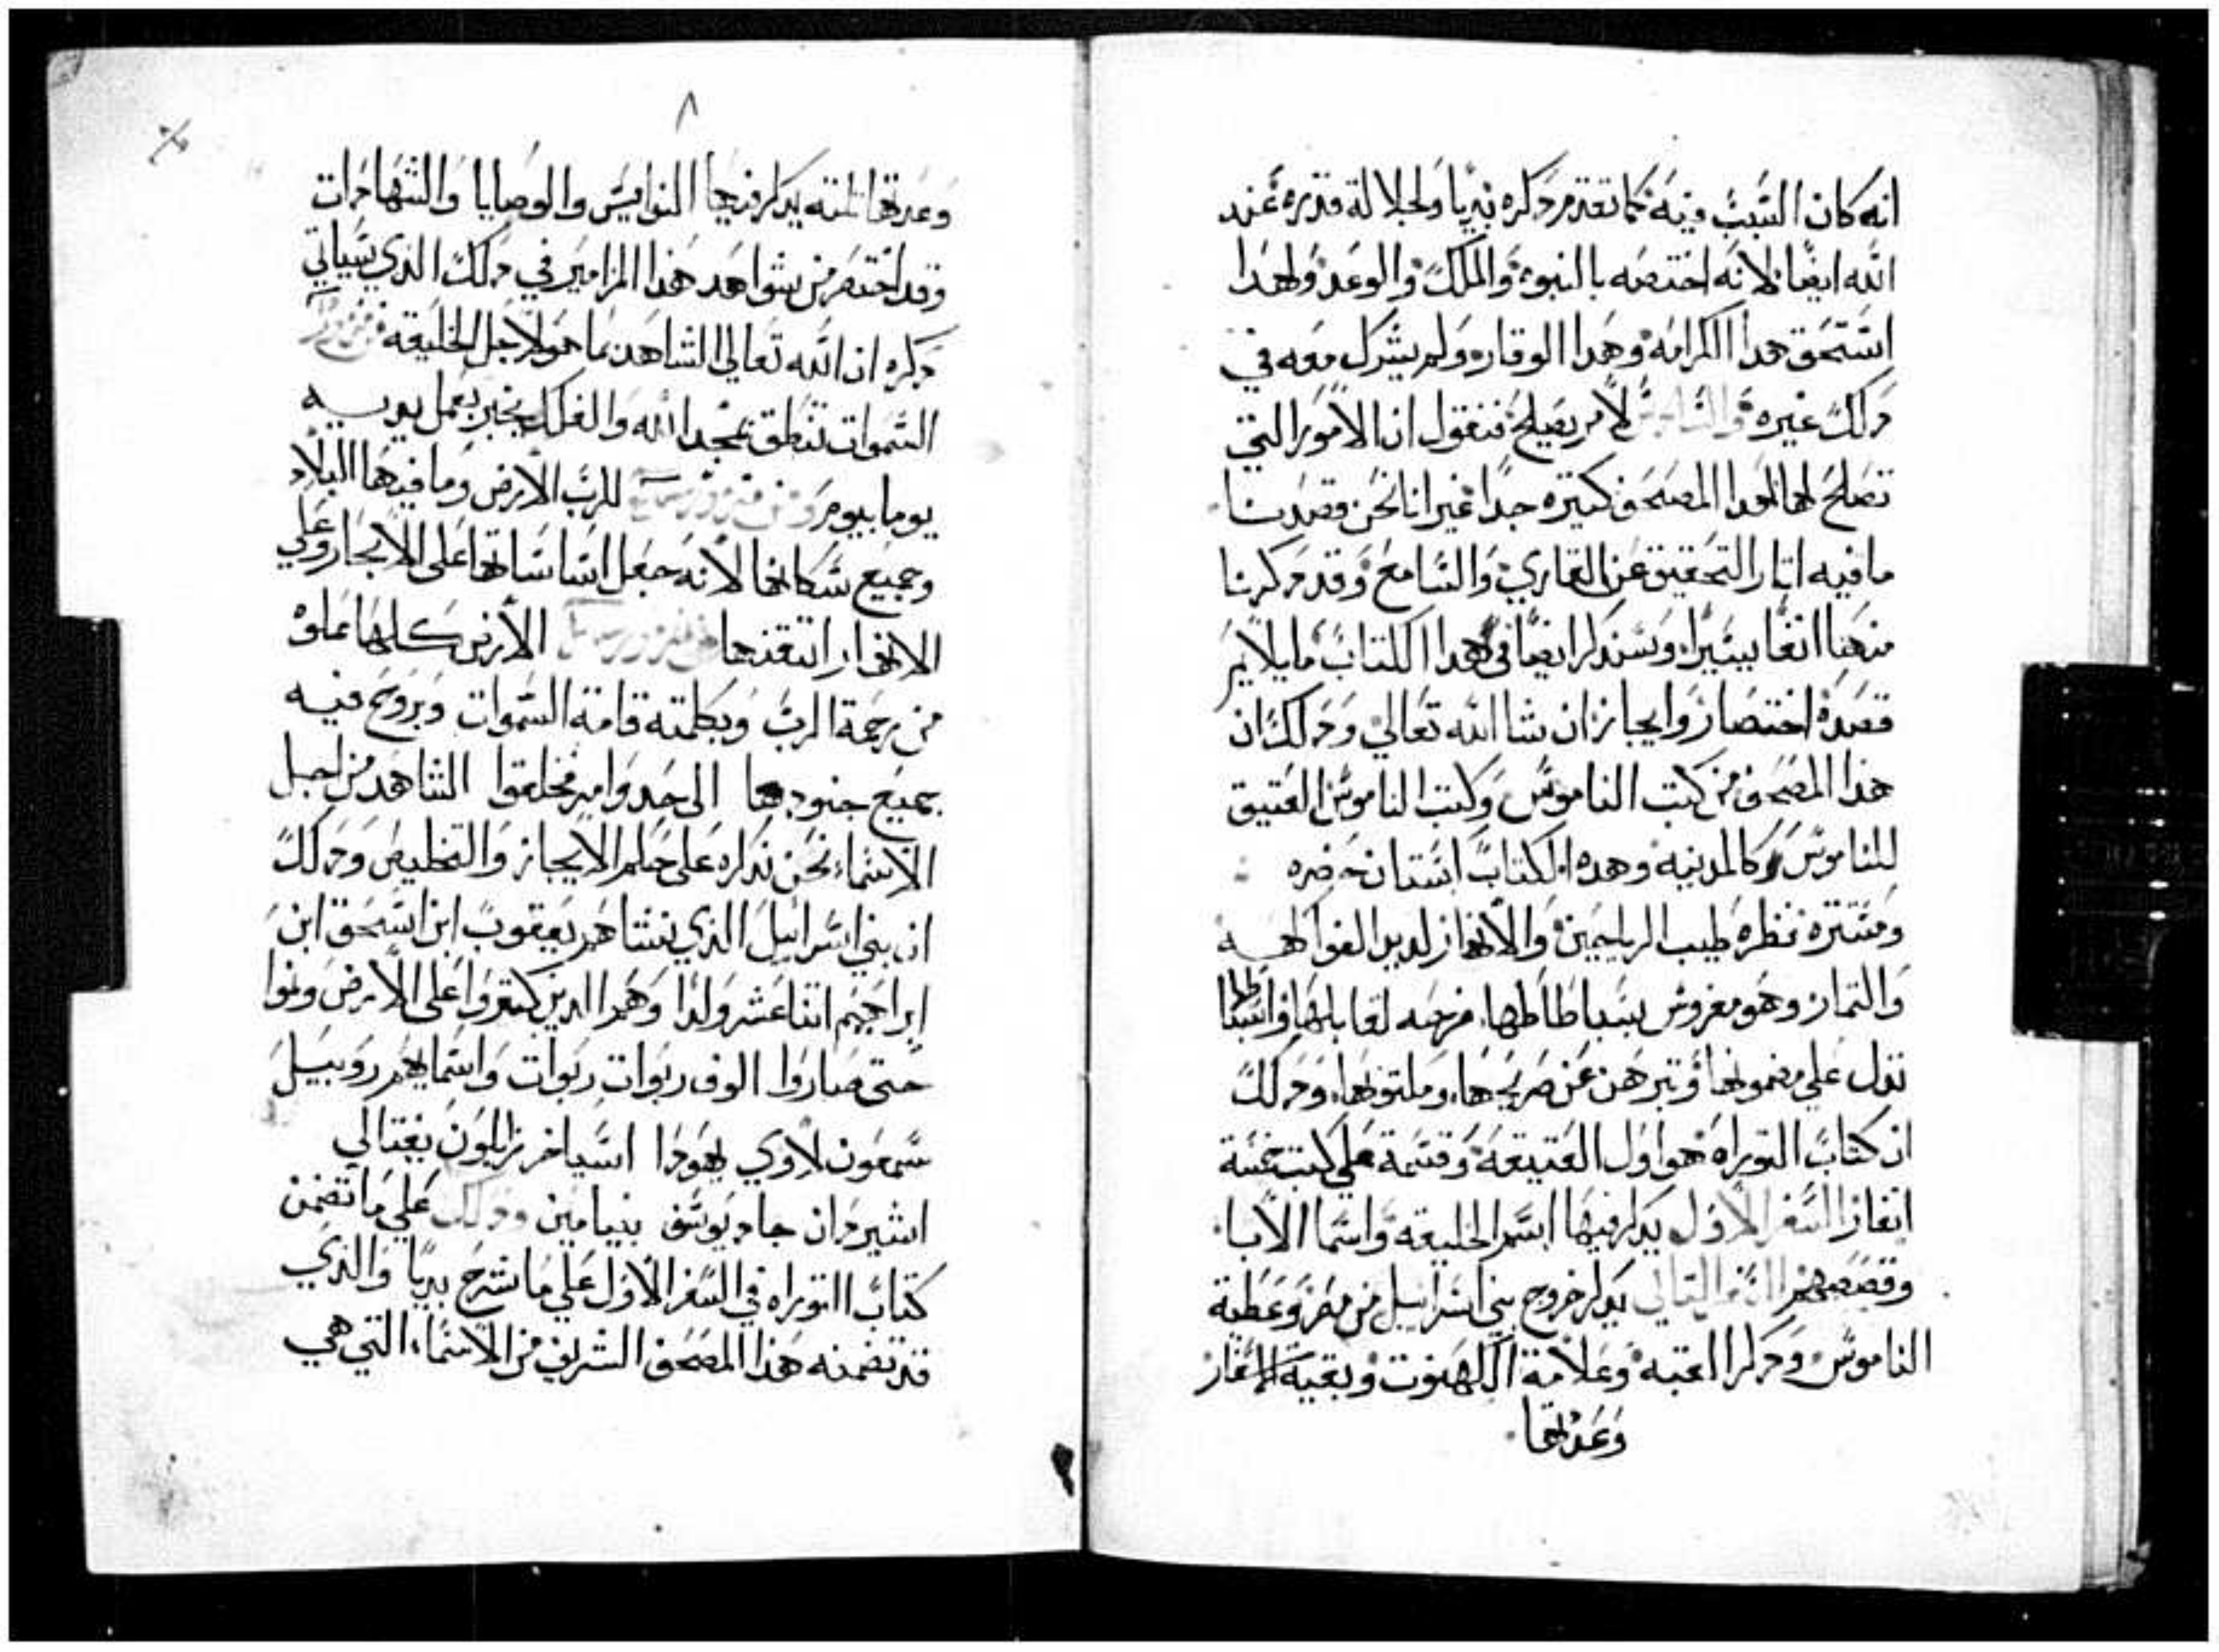 انه كان السبب فيه كما تقدم دكره بديا ولجلالة قدره عند
الله ايضا لانه اختصه بالنبوة والملك والوعد ولهدا
استحق هدا الكرامه وهدا الوقار ولم يشرك معه في
دلك غيره لامر يصلح فنقول ان الامور التي
تصلح لها لهدا المصحف كتيره جدا غير انا نحن قصدنا
ما فيه ايتار التحقيق عن القاري والسامع وقد دكرنا
منها انفا يسيرا وسندكر ايضا في هدا الكتاب ما يلايم
قصده اختصار وايجاز ان شا الله تعالي ودلك ان
هذا المصحف من كتب الناموس وكتب الناموس العتيق
للناموس كالمدنيه وهده الكتاب استان خضره
ومنتزه نظره طيب الرياحين والانهار لديد الفواكه
والتمار وهو مفروش
تدل علي مضمونها وتبرهن عن صريحها وملتوظها ودلك
ان كتاب التوراه هو اول العتيقه وقسمة علي كتب خمسة
اسفار السفر الاول يدكر فيها اسم الخليقه واسما الابا
وقصصهم السفر التاني يدكر خروج بني اسرائيل من مصر وعطية
الناموس ودكر القبه وعلامة الكهنوت وبقية الاسفار
وعدتها
٨
وعدتها تلته يدكر فيها النواميس والوصايا والشهادات
وقد اختصر من شواهد هذا المزامير في دلك الذي سياتي
دكره ان الله تعالي الشاهد بما هو لاجل الخليقه
السموات تنطق بمجد الله والفلك يخبر بعمل يديه
يوما بيوم للرب الارض وما فيها البلاد
وجميع سكانها لانه جعل اساساتها علي الابحار وعلي
الانهار اتقنها الارض كلها مملوه
من رحمة الرب وبكلمته قامة السموات وبروح فيه
جميع جنودها الشاهد من اجل
الاسماء نحن ندكره علي حكم الايجاز والتخليص ودلك
ان بني اسرائيل الذي نشاهم يعقوب ابن اسحق ابن
ابراهيم اتنا عشر ولدا وهم الدين كتروا علي الارض ونموا
حتى صاروا الوف ربوات ربوات واسمايهم روبيل
سمعون لاوي يهودا اسياخر زابلون نفتالي
اشير دان جاد يوسف بنيامين ودلك علي ما تضمن
كتاب التوراه في السفر الاول علي ما شرح بديا والذي
قد تضمنه هذا المصحف الشريف من الاسماء التي هي